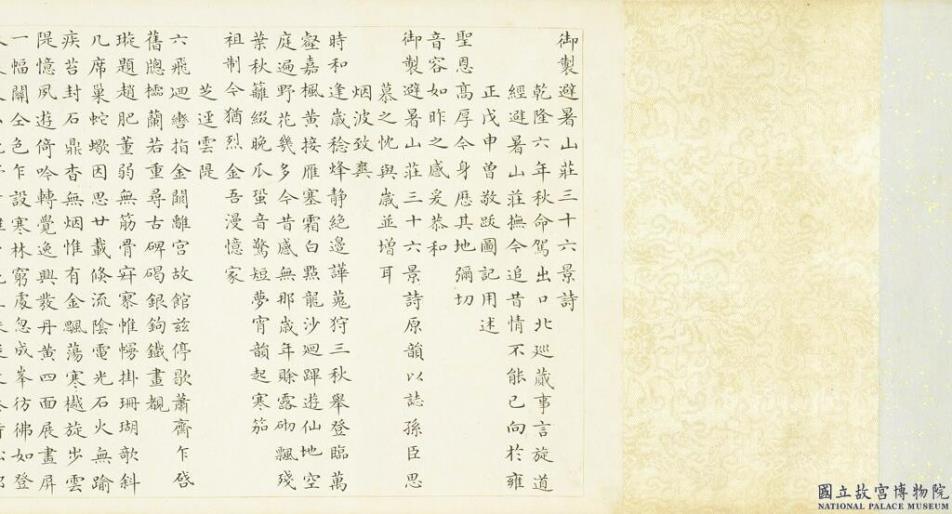 御製避暑山莊三十六景詩
乾隆六年秋命駕出口北巡蕆事言旋道
經避暑山莊撫今追昔情不能已向於雍
正戊申曾敬跋圖記用述
聖恩高厚今身歷其地彌切
音容如昨之感爰恭和
御製避暑山莊三十六景詩原韻以誌孫臣思
慕之忱與歲並增耳
烟波致爽
時和逢歲稔烽靜絕邊譁蒐狩三秋舉登臨萬
壑嘉楓黃接雁塞霜白點龍沙迴蹕遊仙地空
庭過野花幾多今昔感無那歲年賒露砌飄殘
葉秋籬綴晚瓜蛩音驚短夢宵韻起寒笳
祖制今猶烈金吾漫憶家
芝逕雲隄
六飛迴轡指金閶離宮故館茲停歇蕭齋乍啓
舊牕櫺蘭若重尋古碑碣銀鉤鐵畫觀
璇題趙肥董弱無筋骨寂寥惟幌掛珊瑚欹斜
几席巢蛇蠍因思廿載倏流陰電光石火無踰
疾苔封石鼎杳無烟惟有金飄蕩寒樾旋步雲
隄憶風遊倚吟轉覺逸興發丹黃四面展畫屏
一幅關全色乍設寒林窮處忽成峯彷彿如登
國立故宮博物院
NATIONAL PALACE MUSEUM